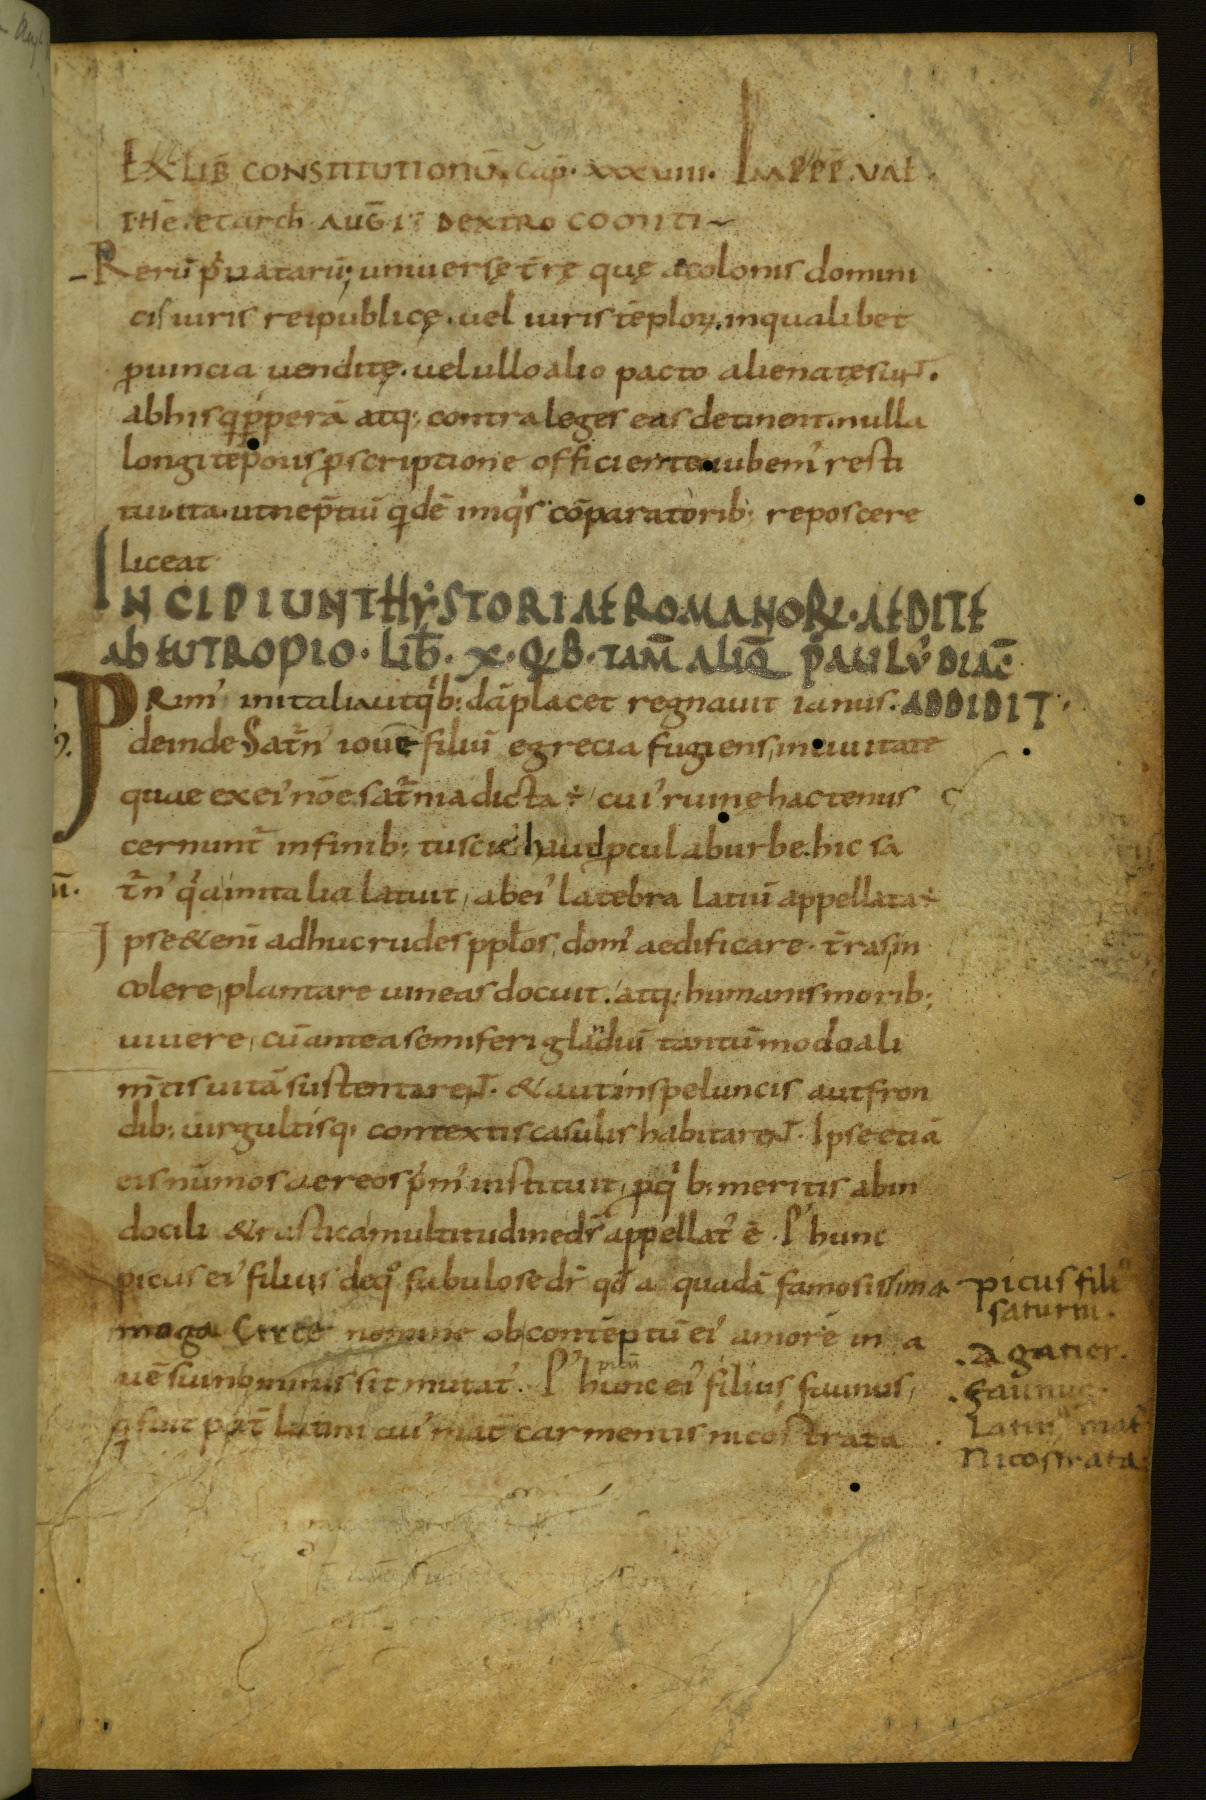 EX LIB̄ CONSTITUTIONŪ. cāp. xxxviiii. IMPPP. VAL.
THE. et arch. AUG̅ DEXTRO COMITI
Rerū p̍uatarū; uniuersę t̄rę quę acolonis domini
cis iuris reipublicę. uel iuris tēploꝝ. inqualibet
ꝓuincia uenditę. uel ullo alio pacto alienatę sunt.
abhis q̇ ꝑperā atq; contra leges eas detinent. nulla
longi tēporis p̄scriptione officiente iubem᾽ resti
tui. ita. ut nep̄tiū qdē iniq̍s cōparatorib; reposcere
liceat
INCIPIUNT HYSTORIAE ROMANOꝜ. AEDITE
AB EUTROPIO. LIB̄. X. QB. TAM̄ ALIQ̄ PAULUS DIAC̄
PRim᾽ initalia ut q̍b; dā placet regnauit ianus. ADDIDIT.
deinde Sat̄n᾽ iouē filiū egrecia fugiens, in ciuitate
quae ex ei᾽ nōe sat̄nia dicta ÷, cui᾽ ruinę hactenus
cernunt᾽ infinib; tuscię haud ꝓcul aburbe. hic sa
t̄n᾽ q̍a initalia latuit, abei᾽ latebra latiū appellata ÷
Ipse & enī adhuc rudes pplos, dom᾽ aedificare. t̄ras in
colere, plantare uineas docuit. atq; humanis morib;
uiuere, cū antea semiferi glādiū tantū modo ali
m̄tis uitā sustentarent. & aut inspeluncis aut fron
dib; uirgultisq; contextis casulis habitarent. Ipse etiā
eis nūmos aereos p̍m᾽ instituit, ꝓ q̍b; meritis abin
docili & rustica multitudine dr̄ appellat᾽ ē. P᾽ hunc
picus ei᾽ filius de q̊ fabulose dr̄ qđ a quadā famosissima
maga Circe nomine ob contēptū ei᾽ amorē in a
uē sui nominis sit mutat᾽. P᾽ hunc picū ei᾽ filius faunus,
q̇ fuit pat̄ latini cui᾽ mat̄ carmentis nicostrata
picus fili᾽
saturni.
Agatier.
faunus.
Latini mat̄
Nicostrata